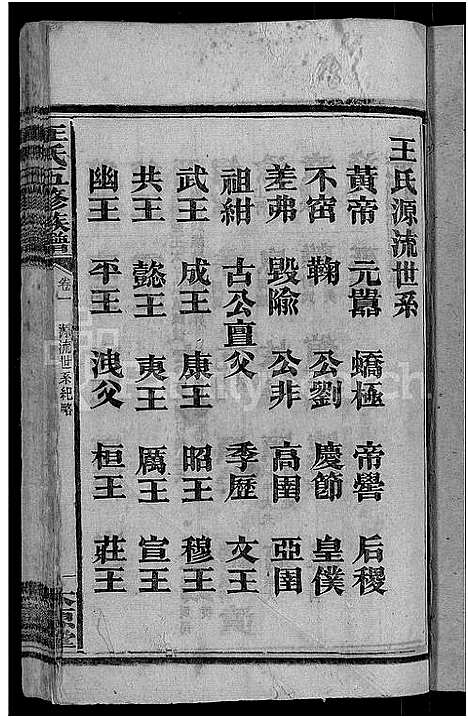 王氏源流世系
黃帝 元囂 蟜極 帝嚳 后稷
不窋 鞠 公劉 慶節 皇僕
差弗 毀隃 公非 高圉 亞圉
祖紺 古公亶父 季歷 文王
武王 成王 康王 昭王 穆王
共王 懿王 夷王 厲王 宣王
幽王 平王 洩父 桓王 莊王
王氏五修族譜 卷一 源流世系紀略 一